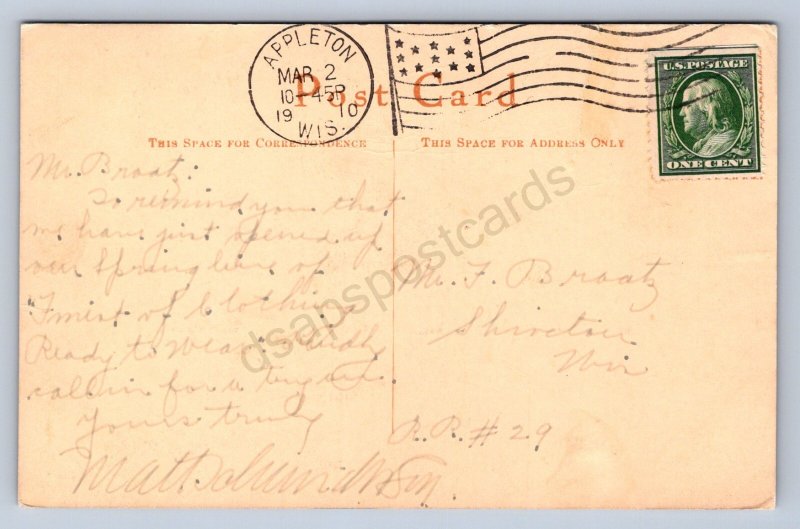 APPLETON
MAR 2
10-45P
19 10
WIS.
U.S. POSTAGE
ONE CENT
Post Card
THIS SPACE FOR CORRESPONDENCE
THIS SPACE FOR ADDRESS ONLY
Mr. Braatz:
To remind you that
we have just opened up
our Spring line of
Finest of Clothing
Ready to Wear. Kindly
call in for a try on
Yours truly
Matt Schmidt & Son
Mr. F. Braatz
Shiocton
Wis
R.R. # 29
dsapspostcards